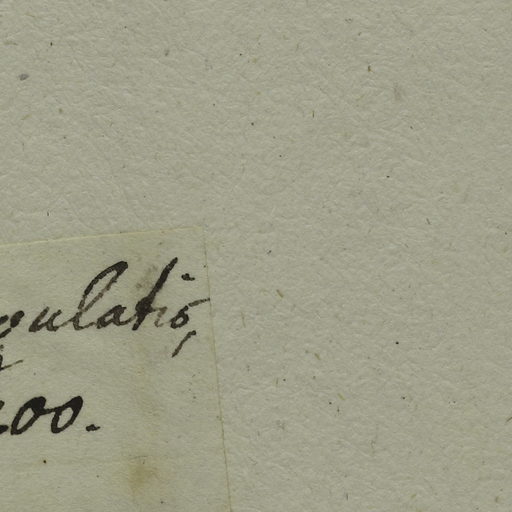 gulatis,
200.